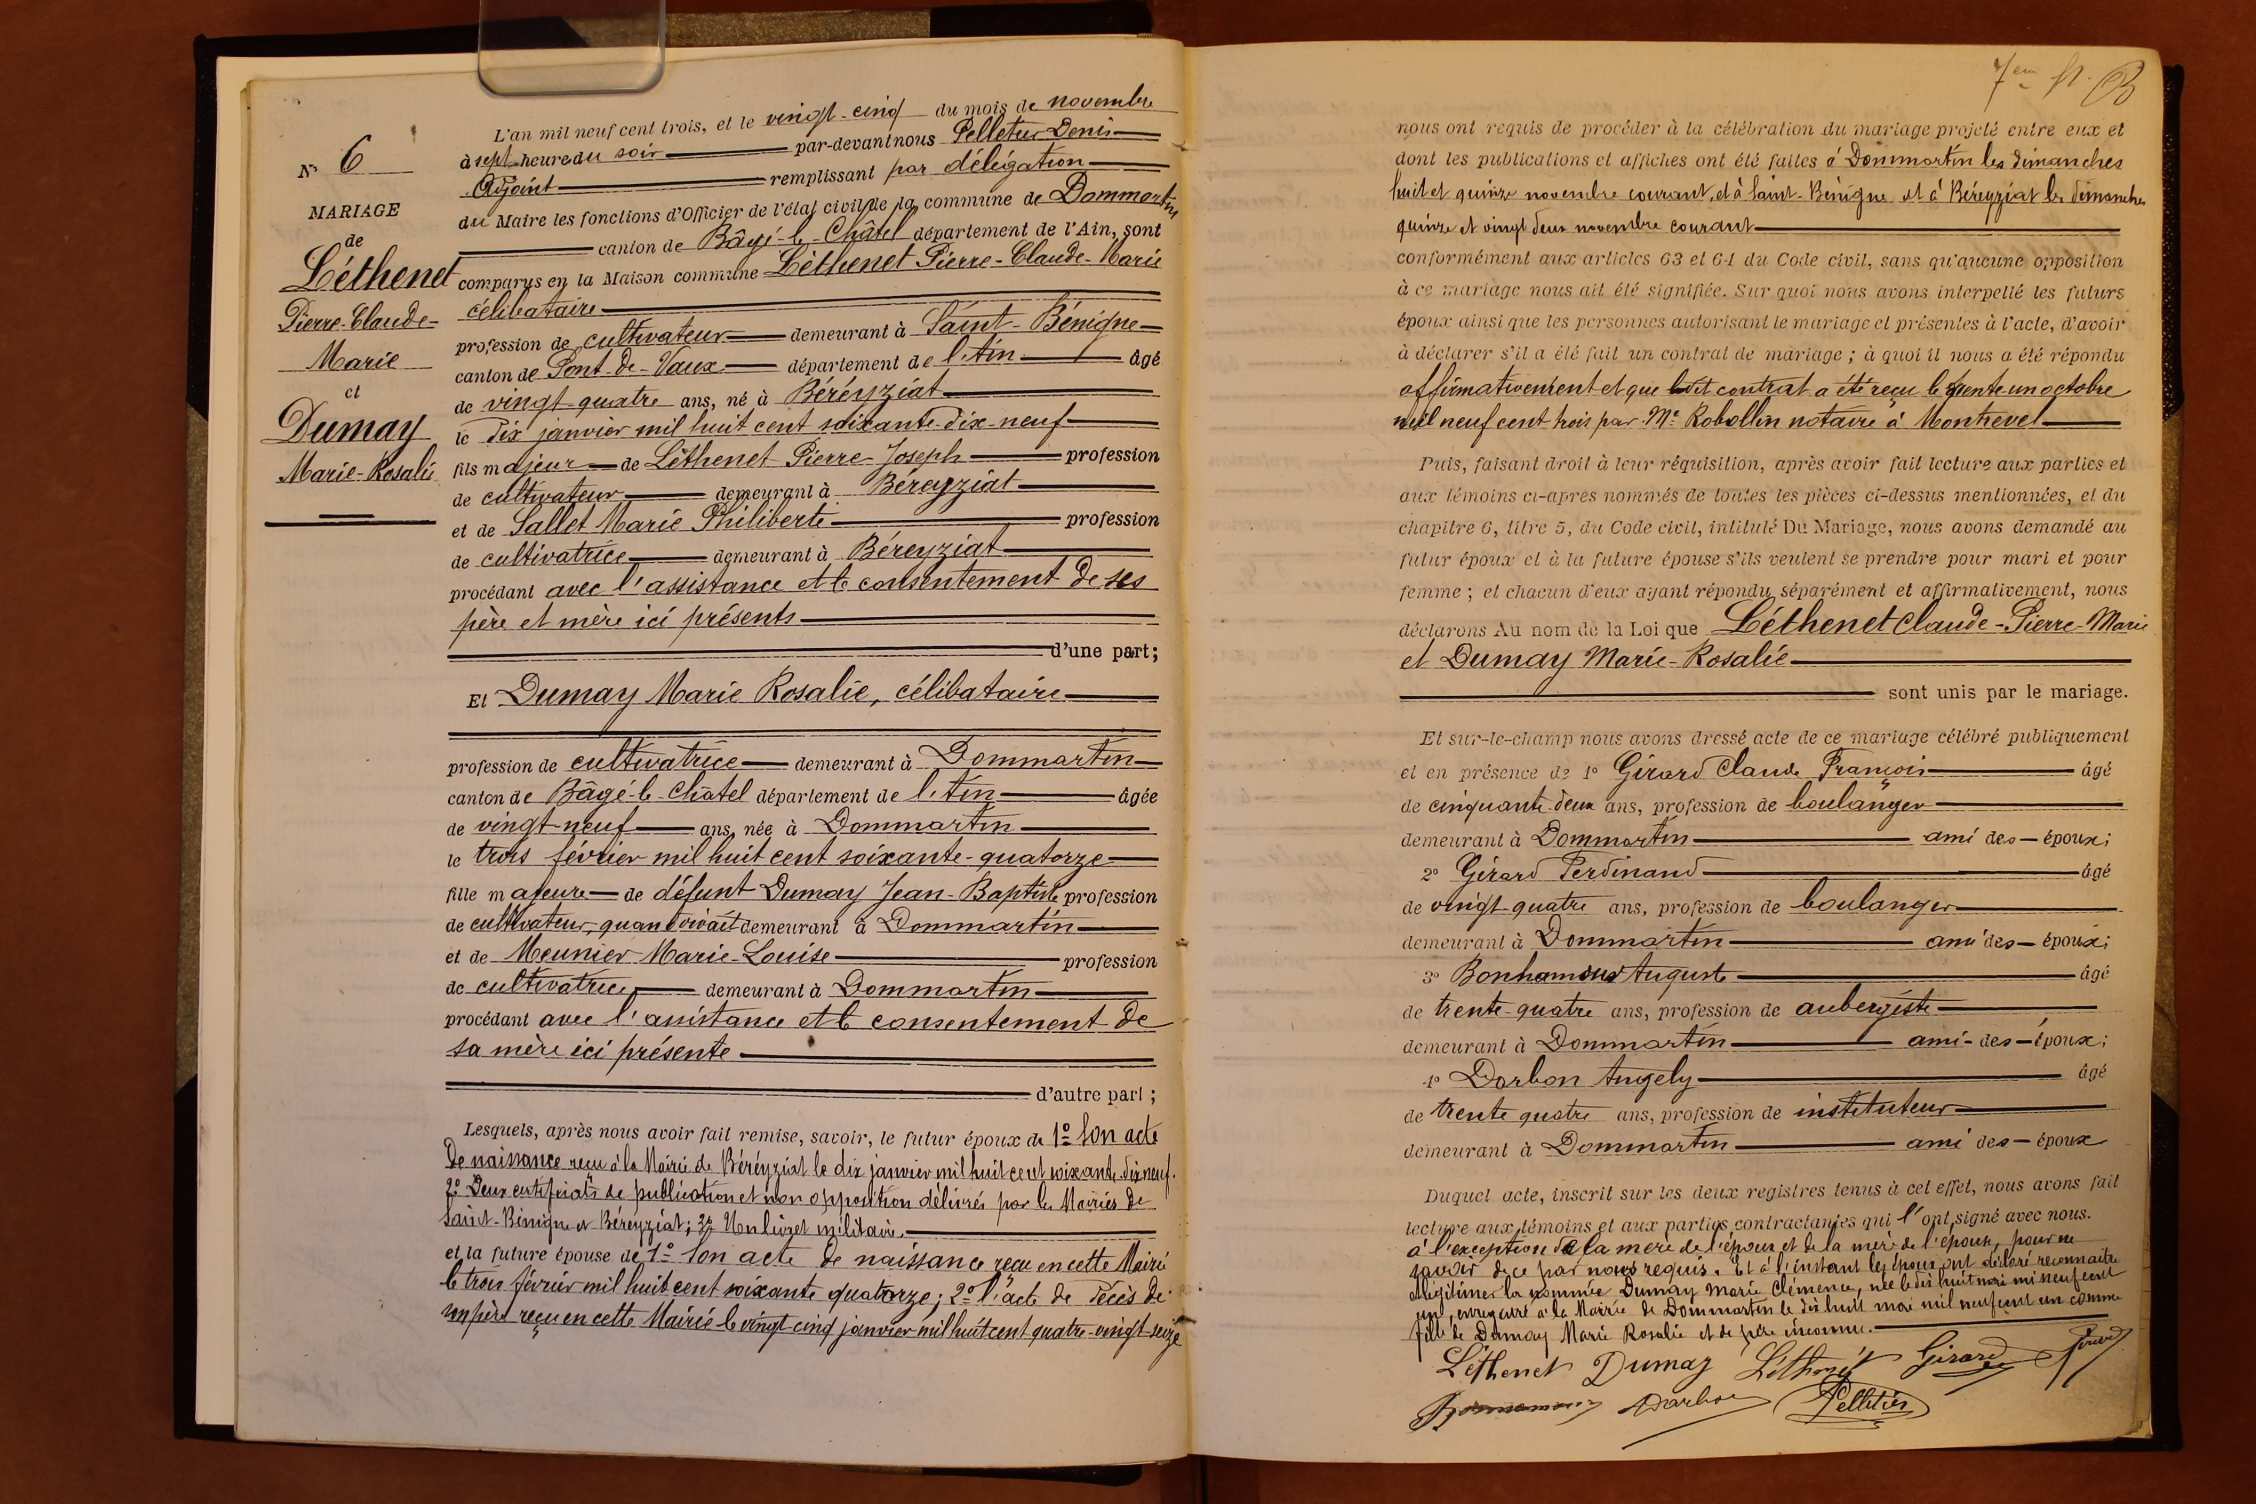 L'an mil neuf cent trois, et le vingt-cinq du mois de novembre
à sept heure du soir par-devant nous Pelletier Denis
Adjoint remplissant par délégation
du Maire les fonctions d'Officier de l'état civil de la commune de Dommartin
canton de Bâgé-le-Châtel département de l'Ain, sont
comparus en la Maison commune Léthenet Pierre-Claude-Marie
célibataire
profession de cultivateur demeurant à Saint-Bénigne
canton de Pont-de-Vaux département de l'Ain âgé
de vingt-quatre ans, né à Béréyziat
le dix janvier mil huit cent soixante-dix-neuf
fils majeur de Léthenet Pierre-Joseph profession
de cultivateur demeurant à Béreyziat
et de Sallet Marie Philiberte profession
de cultivatrice demeurant à Béreyziat
procédant avec l'assistance et le consentement de ses
père et mère ici présents
d'une part;
Et Dumay Marie Rosalie, célibataire
profession de cultivatrice demeurant à Dommartin
canton de Bâgé-le-Châtel département de l'Ain âgée
de vingt-neuf ans, née à Dommartin
le trois février mil huit cent soixante-quatorze
fille majeure de défunt Dumay Jean-Baptiste profession
de cultivateur, quand vivait demeurant à Dommartin
et de Meunier Marie-Louise profession
de cultivatrice demeurant à Dommartin
procédant avec l'assistance et le consentement de
sa mère ici présente
d'autre part;
Lesquels, après nous avoir fait remise, savoir, le futur époux de 1º Son acte
de naissance reçu à la Mairie de Béréyziat le dix janvier mil huit cent soixante-dix neuf.
2º Deux certificats de publication et non opposition délivrés par les Mairies de
Saint-Bénigne et Béreyziat; 3º Un livret militaire.
et la future épouse de 1º Son acte de naissance reçu en cette Mairie
le trois février mil huit cent soixante quatorze; 2º l'acte de décès de
son père reçu en cette Mairie le vingt cinq janvier mil huit cent quatre-vingt-seize
Nº 6
MARIAGE
de
Léthenet
Pierre-Claude-
Marie
et
Dumay
Marie-Rosalie
7em ft. B
nous ont requis de procéder à la célébration du mariage projeté entre eux et
dont les publications et affiches ont été faites à Dommartin les dimanches
huit et quinze novembre courant, et à Saint-Bénigne et à Béreyziat les dimanches
quinze et vingt deux novembre courant
conformément aux articles 63 et 64 du Code civil, sans qu'aucune opposition
à ce mariage nous ait été signifiée. Sur quoi nous avons interpellé les futurs
époux ainsi que les personnes autorisant le mariage et présentes à l'acte, d'avoir
à déclarer s'il a été fait un contrat de mariage; à quoi il nous a été répondu
affirmativement et que ledit contrat a été reçu le trente un octobre
mil neuf cent trois par Me Robollin notaire à Montrevel
Puis, faisant droit à leur réquisition, après avoir fait lecture aux parties et
aux témoins ci-après nommés de toutes les pièces ci-dessus mentionnées, et du
chapitre 6, titre 5, du Code civil, intitulé Du Mariage, nous avons demandé au
futur époux et à la future épouse s'ils veulent se prendre pour mari et pour
femme; et chacun d'eux ayant répondu séparément et affirmativement, nous
déclarons Au nom de la Loi que Léthenet Claude-Pierre-Marie
et Dumay Marie-Rosalie
sont unis par le mariage.
Et sur-le-champ nous avons dressé acte de ce mariage célébré publiquement
et en présence de 1º Girard Claude François âgé
de cinquante-deux ans, profession de boulanger
demeurant à Dommartin ami des époux;
2º Girard Ferdinand âgé
de vingt-quatre ans, profession de boulanger
demeurant à Dommartin ami des époux;
3º Bonhamour Auguste âgé
de trente-quatre ans, profession de aubergiste
demeurant à Dommartin ami-des-époux;
4º Dorbon Angely âgé
de trente quatre ans, profession de instituteur
demeurant à Dommartin ami des époux
Duquel acte, inscrit sur les deux registres tenus à cet effet, nous avons fait
lecture aux témoins et aux parties contractantes qui l'ont signé avec nous.
à l'exception de la mère de l'époux et de la mère de l'épouse, pour ne
savoir de ce par nous requis. Et à l'instant les époux ont déclaré reconnaître
et légitimer la nommée Dumay Marie Clémence, née le dix huit mai mil neuf cent
un, enregistré à la Mairie de Dommartin le dix huit mai mil neuf cent un comme
fille de Dumay Marie Rosalie et de père inconnu.
Léthenet Dumay Léthenet Girard Girard
Bonhamour Darbon Pelletier